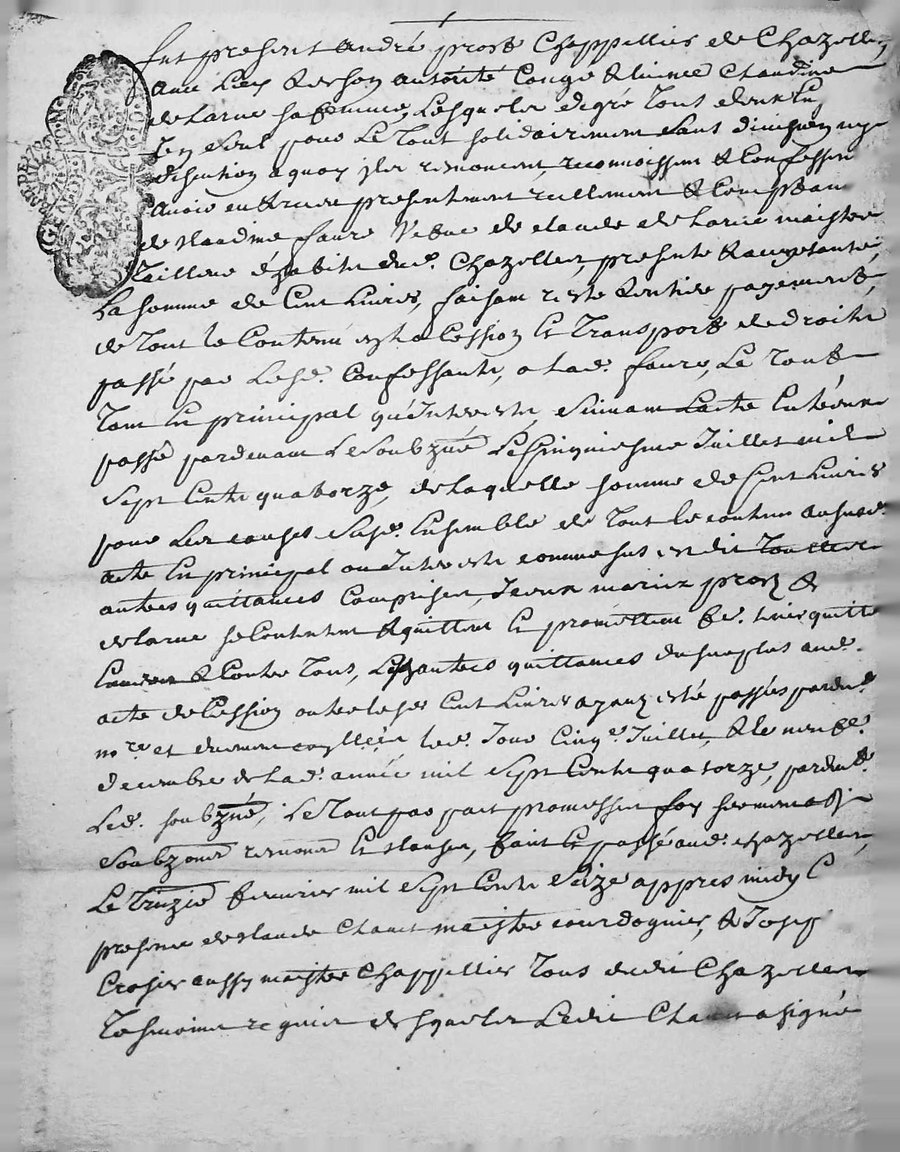 Fut present André prost Chappellier de Chazelles,
avec luy de son autorité Congé & licence Claudine
de Larue sa femme, Lesquels de gré Tout deux Lun
Ten seul pour Le Tout solidairement sans division ny
discution a quoy ils renoncent, reconnoissent & Confessent
avoir eu & receu presentement reellement & Comptant
de Claudine faure Vefve de claude de Larue maistre
Tailleur d'habits dud. Chazelles, presente & acceptante,
La somme de Cent Livres, faisant reste & entier payement,
de Tout le Contenu en la Cession et Transport de droits
passé par Lesd. Confessants, a lad. faure, Le Tout
Tant En principal qu'interests, suivant Lacte En receu
passé pardevant Le soubzné Le Cinquiesme Juillet mil
Sept Cents quatorze, de laquelle somme de Cent Livres
pour Les causes susd. Ensemble de Tout le contenu aususd.
acte En principal ou interests comme sus est dit
autres quittances Comprises, Iceux mariez prost &
delarue se Contentent & quittent Et promettent fe. tenir quitte
Envers & Contre Tous, Les autres quittances du surplus aud.
acte de Cession outre lesd. Cent Livres ayant esté passées pardt.
nore et duement collées led. Jour Cinqe. Juillet, & le neufe.
decembre de lad. année mil Sept Cents quatorze, pardt.
Led. soubzné, Le Tout par fait promesses foy serment obj.
Soubzons renons Et clauses, fait Et passé aud. chazelles,
Le Treizie fevrier mil Sept Cents Seize appres midy E
presence de claude Chanut maistre courdognier, & Josepf
Crosier aussy maistre Chappellier Tous dudit Chazelles
Tesmoins requis desquels Ledit Chanut a signé